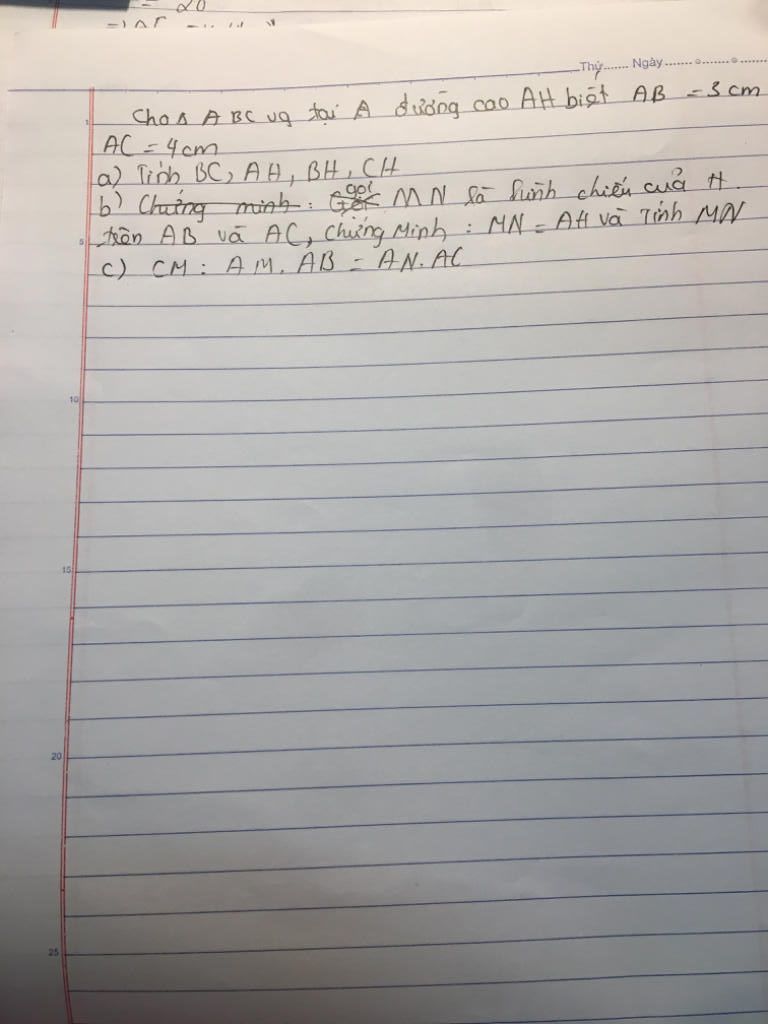 = 20
Thứ....... Ngày.......
Cho Δ ABC vg tại A đường cao AH biết AB = 3 cm
AC = 4cm
a) Tính BC, AH, BH, CH
b) Chứng minh : gọi MN là hình chiếu của H
5
trên AB và AC, Chứng Minh : MN = AH và Tính MN
c) CM : AM. AB = AN. AC
10
15
20
25